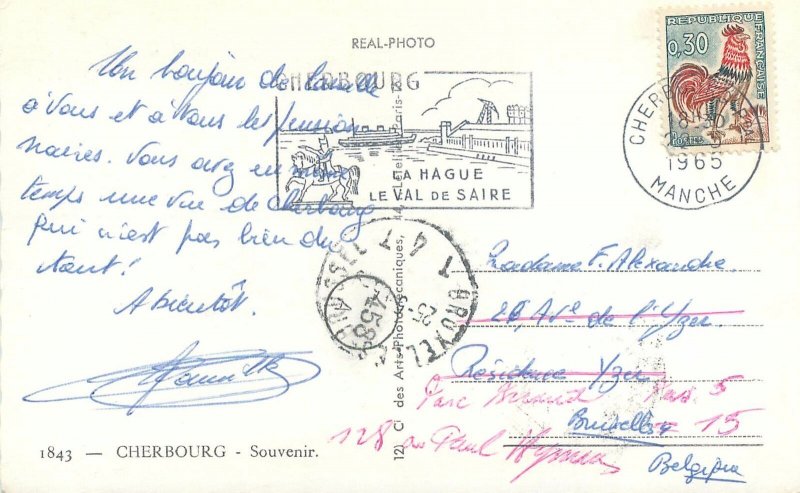 REAL-PHOTO
Un bonjour de
à vous et à tous les pension
naires. Vous avez en même
temps une vue de Cherbourg
qui n'est pas bien du
tout!
A bientôt.
1843 — CHERBOURG - Souvenir.
CHERBOURG
LA HAGUE
LE VAL DE SAIRE
des Arts Photomécaniques, 44, Paris
REPUBLIQUE FRANÇAISE
0,30
Postes
CHERBOURG
1965
MANCHE
Madame F. Alexandre
26, Av. de l'Yzer
Résidence Yzer
Parc 5
Bruxelles 15
128 av Paul Hymans
Belgique